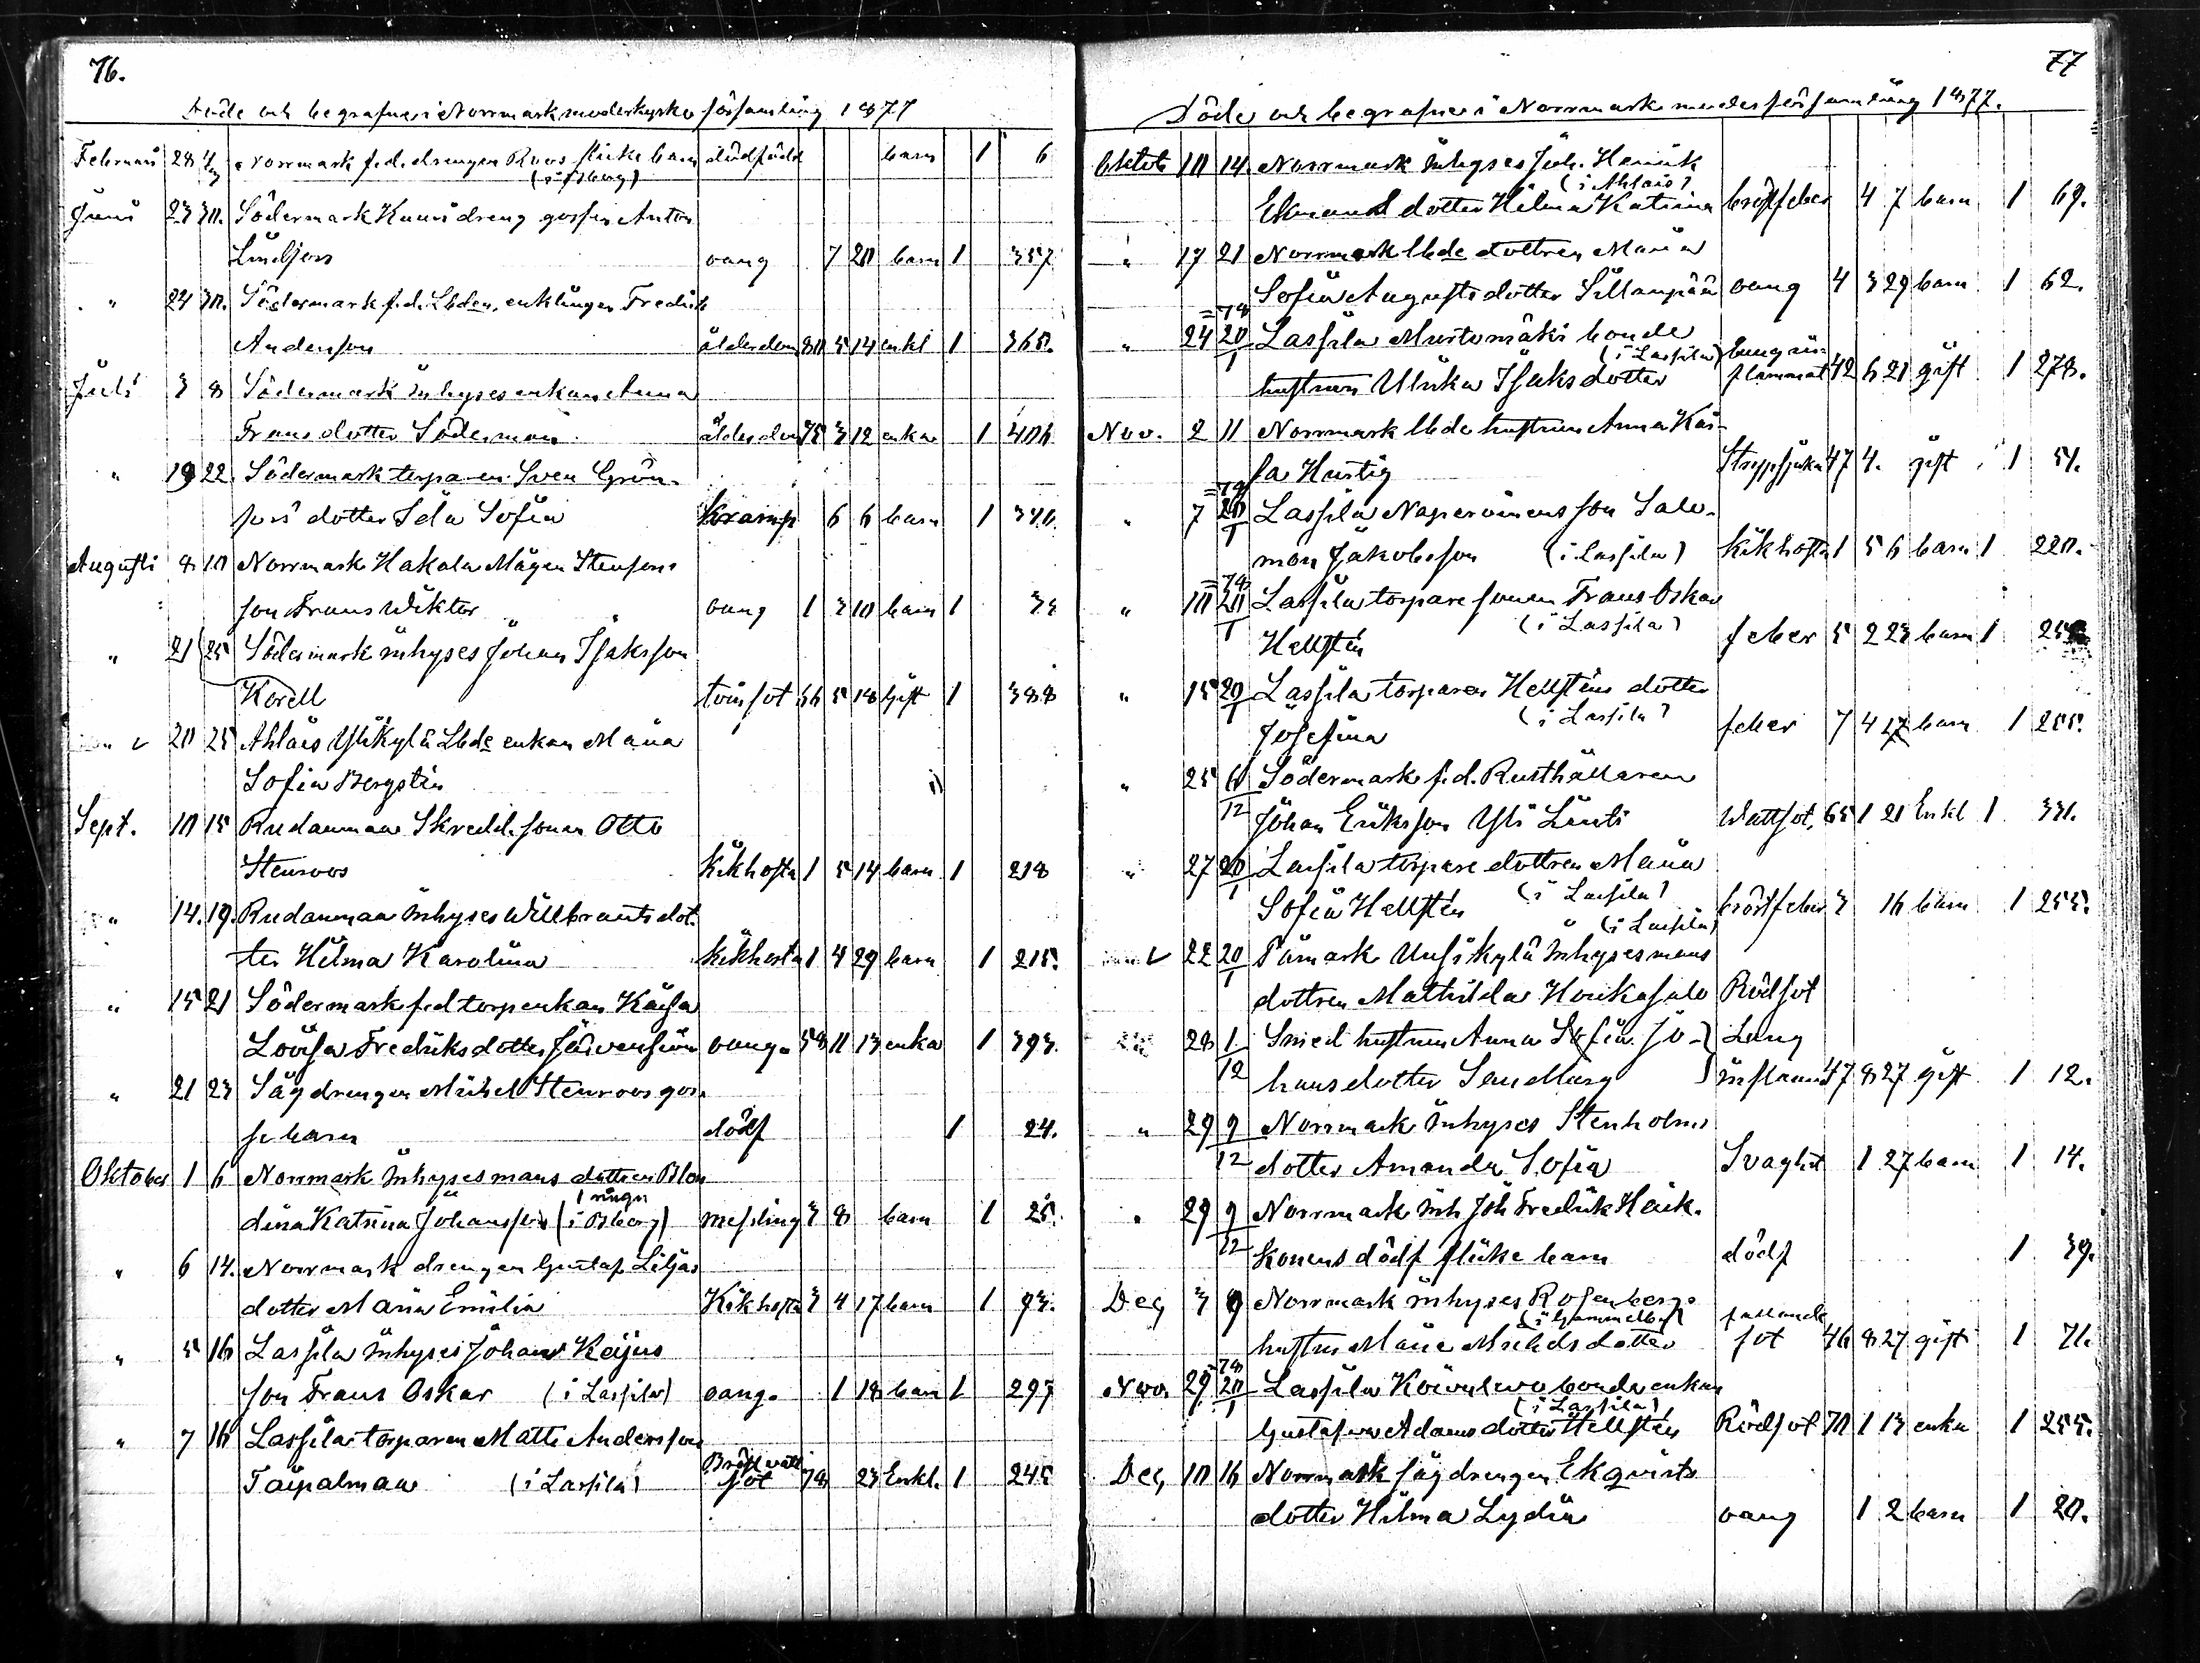 76.
Döde och begrafne i Norrmark moderkyrko församling 1877
Februari 28 4/3 Norrmark f.d. drengen Roos flicke barn dödfödd barn 1 6
(i Björneborg)
Juni 23 30. Södermark Knuus dreng gossen Anton
Lindfors oang 7 20 barn 1 357
" 24 30. Södermark f.d. Lbden, enklingen Fredrik
Anderson ålderdom 80 5 14 enkl 1 365.
Juli 3 8 Södermark inhyses enkan Anna
Fransdotter Söderman ålderdom 75 3 12 enka 1 406
" 19 22. Södermark torparen Sven Grön-
fors dotter Ida Sofia Kramp 6 6 barn 1 340.
Augusti 8 10 Norrmark Hakala Mågen Stensons
son Frans Wiktor oang 1 3 10 barn 1 33
" 21 25 Södermark inhyses Johan Isaksson
Korell tvinsot 36 5 18 Gift 1 388
" 20 25 Ahlais Ylikylä Lbde enkan Maria
Sofia Bergstén
Sept. 10 15 Rudanmaa Skredd. sonen Otto
Stenroos Kikhosta 1 5 14 barn 1 218
" 14. 19. Rudanmaa inhyses Willbrants dot
ter Hilma Karolina Kikhosta 1 4 29 barn 1 215.
" 15 21 Södermark f.d torpenkan Kaisa
Lovisa Fredriksdotter Järvensivu oang. 58 11 13 enka 1 393.
" 21 23 Sågdrengen Mikel Stenroos gos-
se barn dödf 1 24.
Oktober 1 6 Norrmark inhysesmans dottren Blon
dina Katrina Johansson (i Björneborg) messling 3 8 barn 1 25.
" 6 14. Norrmark drengen Gustaf Liljas
dotter Maria Emilia Kikhosta 3 4 17 barn 1 93.
" 5 16 Lassila inhyses Johan Keijus
son Frans Oskar (i Lassila) oang. 1 18 barn 1 297
" 7 16 Lassila torparen Matts Andersson
Taipalmaa (i Lassila) Bröstvatt sot 78 23 Enkl. 1 245
77
Döde och begrafne i Norrmark moderförsamling 1877.
Oktob 10 14. Norrmark inhyses Joh. Henrik
(i Ahlais)
Ekmans dotter Hilma Katrina bröstfeber 4 7 barn 1 69.
" 17 21 Norrmark Lbde dottren Maria
Sofia Augustsdotter Sillanpää oang 4 3 29 barn 1 62.
" 24 20/1 =78 Lassila Murtomäki bonde
(i Lassila) lungin-
hustrun Ulrika Isaksdotter flammat 42 6 21 gift 1 278.
Nov. 2 11 Norrmark Lbde hustrun Anna Kai-
sa Hurtig Strypsjuka 47 4. gift 1 51.
" 7 20/1 =78 Lassila Naperoinens son Salo-
mon Jakobsson (i Lassila) Kikhosta 1 5 6 barn 1 220.
" 10 20/1 =78 Lassila torpare sonen Frans Oskar
(i Lassila)
Hellstén feber 5 2 23 barn 1
" 15 20/1 Lassila torparen Hellsténs dotter
(i Lassila)
Josefina feber 7 4 17 barn 1 255.
" 25 Södermark f.d. Rusthållaren
12 Johan Eriksson Yli Lenti Wattsot, 65 1 21 Enkl 1 331.
" 27 20/1 Lassila torpare dottren Maria
Sofia Hellstén (i Lassila) bröstfeber 3 16 barn 1 255.
" (i Lassila)
22 20/1 Påmark Uusikylä inhysesmans
dottren Mathilda Honkasalo Rödsot
28 1/12 Smed hustrun Anna Sofia Jo- Lung
hansdotter Sandberg inflamat 47 8 27 gift 1 12.
" 29 9/12 Norrmark inhyses Stenholms
dotter Amanda Sofia Svaghet 1 27 barn 1 14.
" 29 9/12 Norrmark inh Joh Fredrik Heik-
konens dödf flicke barn dödf 1 39.
Dec 3 9 Norrmark inhyses Rosenbergs
(i Gammelby) fallande
hustru Maria Mickelsdotter sot 46 8 27 gift 1 71.
Nov. 29 20/1 =78 Lassila Koivulevo bonde enkan
(i Lassila)
Gustafva Adamsdotter Hellstén Rödsot 70 1 13 enka 1 255.
Dec 10 16 Norrmark sågdrengen Ekqvists
dotter Hilma Lydia oang 1 2 barn 1 20.